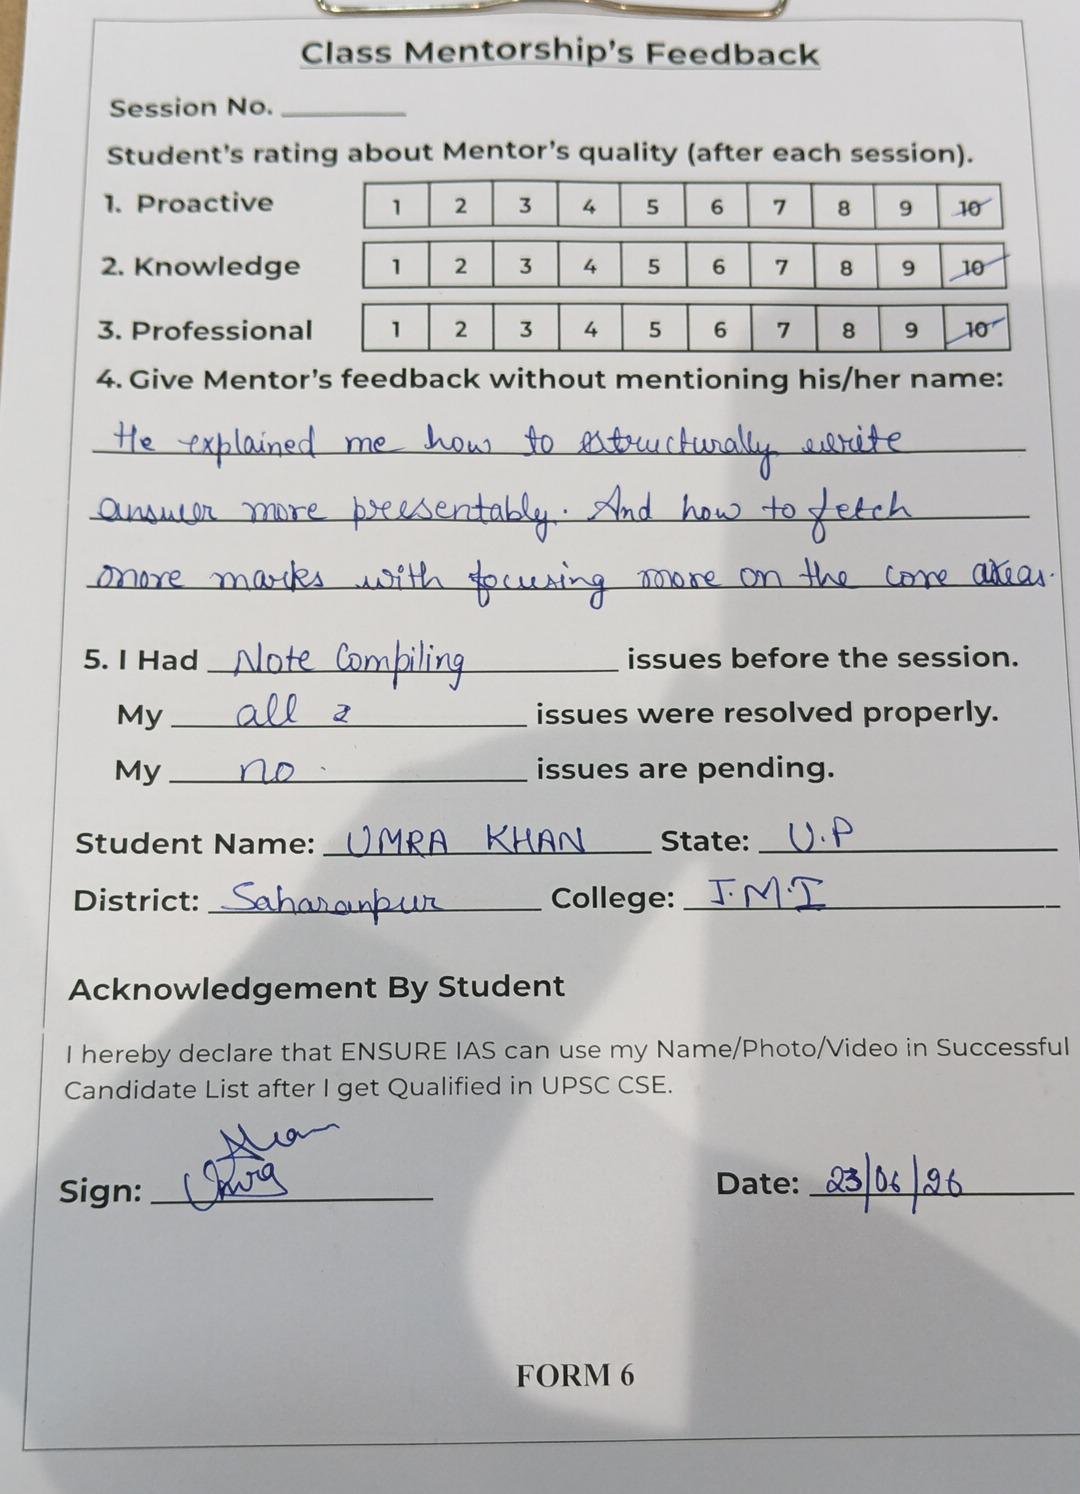 Class Mentorship's Feedback
Session No.
Student's rating about Mentor's quality (after each session).
1. Proactive 1 2 3 4 5 6 7 8 9 10
2. Knowledge 1 2 3 4 5 6 7 8 9 10
3. Professional 1 2 3 4 5 6 7 8 9 10
4. Give Mentor's feedback without mentioning his/her name:
He explained me how to structurally write
answer more presentably. And how to fetch
more marks with focusing more on the core areas.
5. I Had Note Compiling issues before the session.
My all issues were resolved properly.
My no issues are pending.
Student Name: UMRA KHAN State: U.P
District: Saharanpur College: J.M.I
Acknowledgement By Student
I hereby declare that ENSURE IAS can use my Name/Photo/Video in Successful
Candidate List after I get Qualified in UPSC CSE.
Sign: Date: 23/06/26
FORM 6